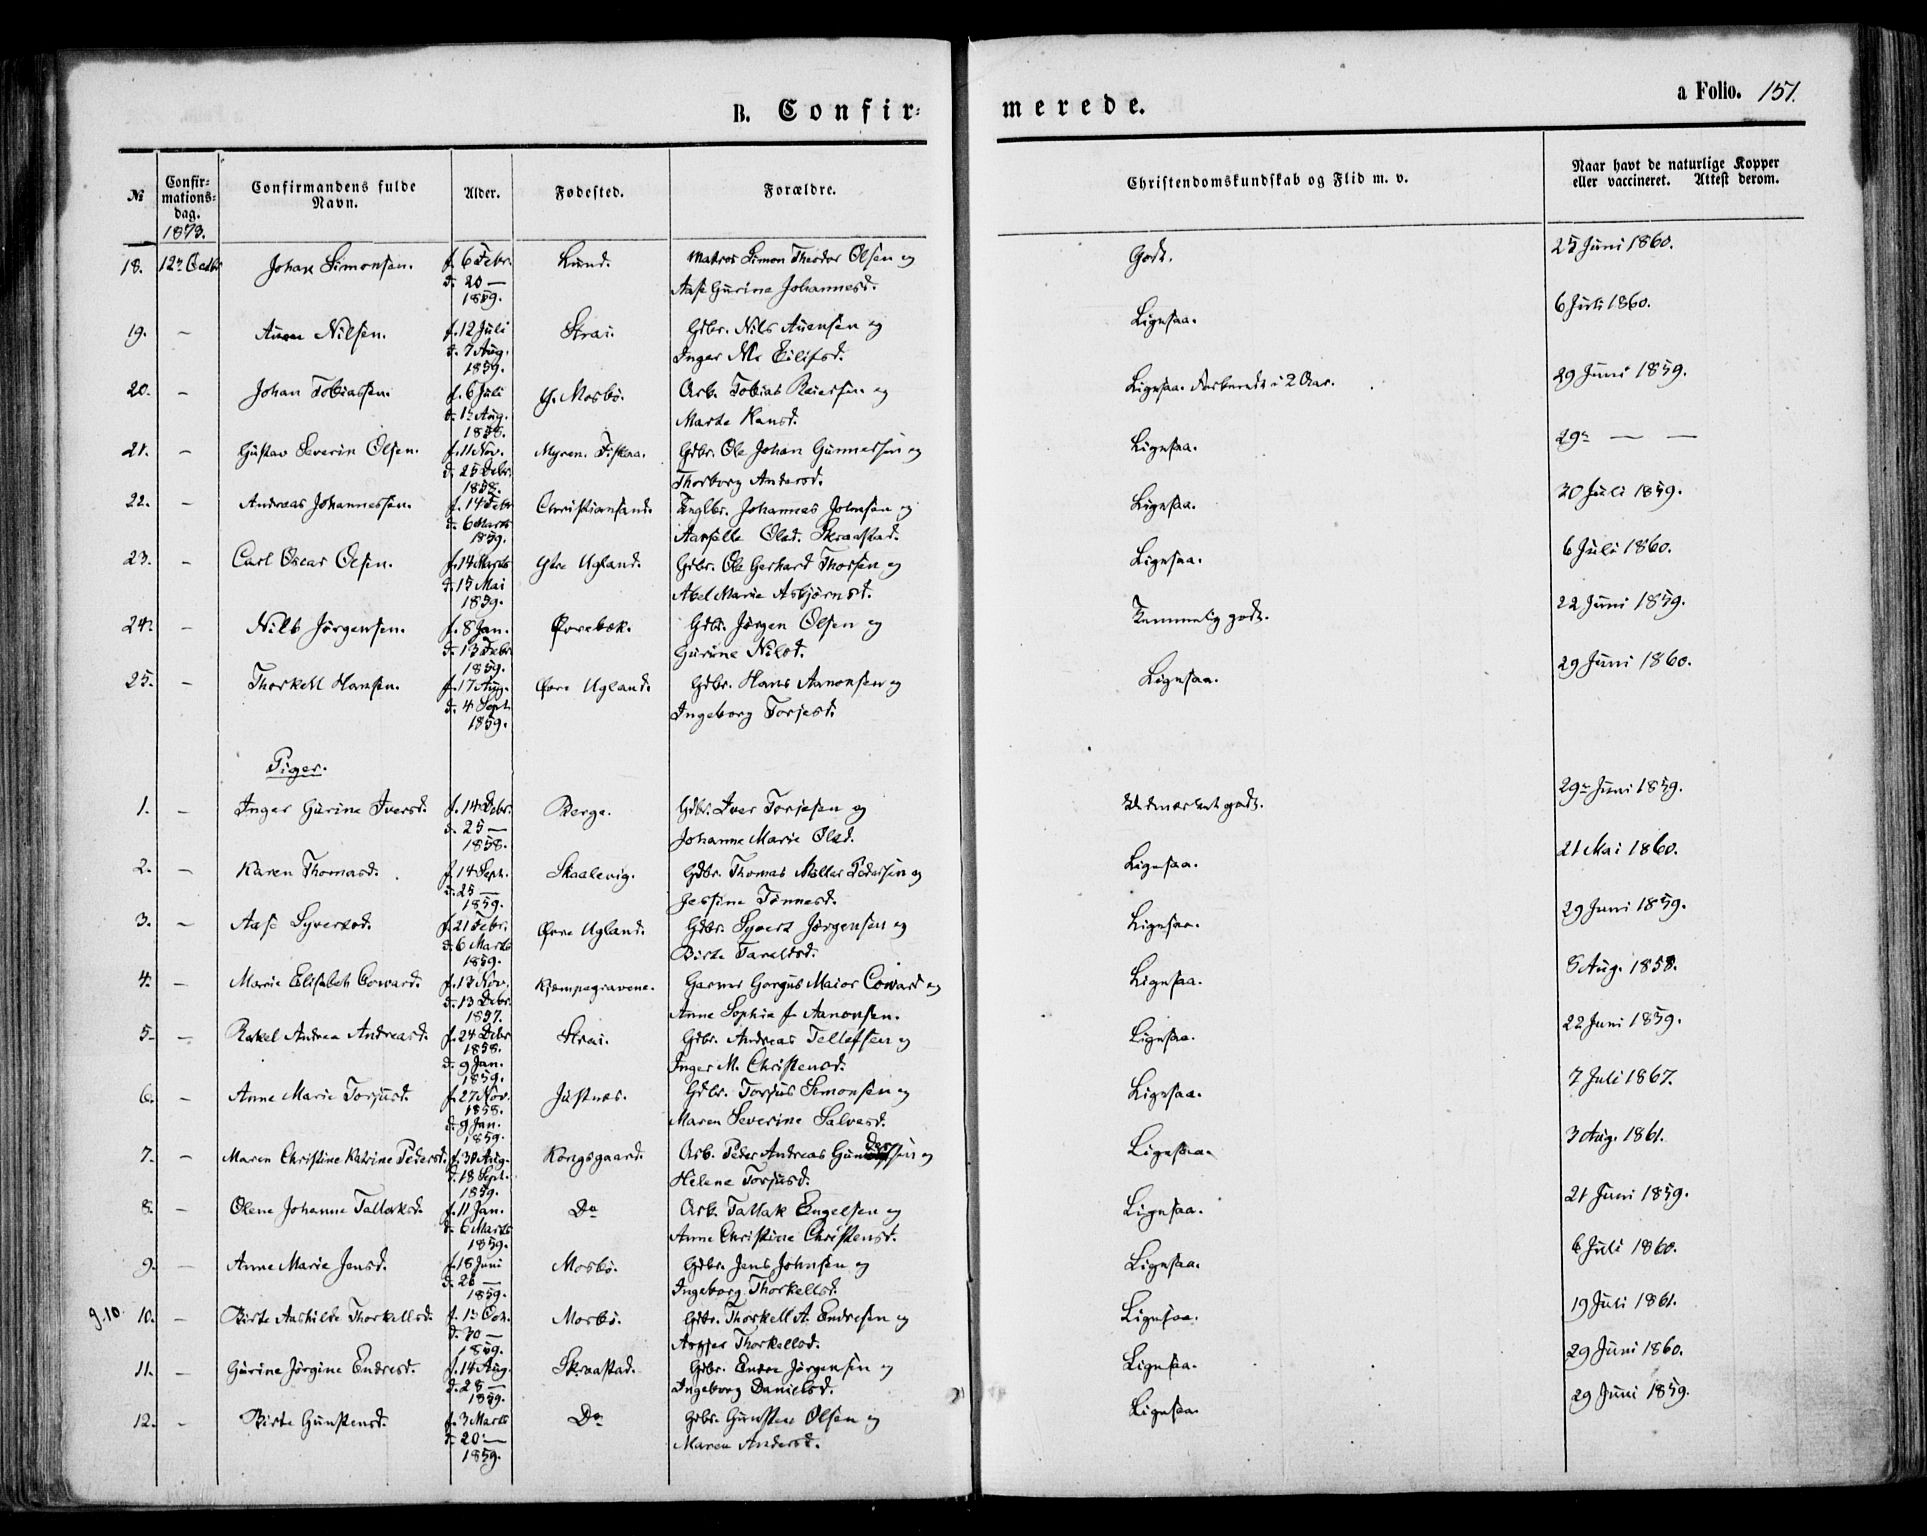 B. Confir-merede.
a Folio. 151.
№ Confir-mations-dag. 1873. Confirmandens fulde Navn. Alder. Fødested. Forældre. Christendomskundskab og Flid m. v. Naar havt de naturlige Kopper eller vaccineret. Attest derom.
18. 12te Octbr Johan Simonsen. f. 6 Febr. Lund. Matros Simon Theodor Olsen og Godt. 25 Juni 1860.
d. 20 — Aase Gurine Johannesd.
1859.
19. — Nilsen. f. 12 Juli Strai. Gdbr. Nils og Ligesaa. 6 Juli 1860.
d. 7 Aug. Inger Eilifsd.
1859.
20. — Johan Tobiassen. f. 6 Juli Mosbö. Arb. Tobias Reiersen og Ligesaa. Forberedt i 2 Aar. 29 Juni 1859.
d. 1te Aug. Marte Hansd.
1858.
21. — Gustav Severin Olsen. f. 11 Nov. Myren. Fiskaa. Gdbr. Ole Johan Gunnersen og Ligesaa. 29de — —
d. 25 Debr. Thorborg Andersd.
1858.
22. — Andreas Johannessen. f. 14 Febr Christiansand. Johannes Johnsen og Ligesaa. 30 Juli 1859.
d. 6 Marts Olsd. Skraastad.
1859.
23. — Carl Oscar Olsen. f. 14 Marts Ytre Ugland. Gdbr. Ole Gerhard Thorsen og Ligesaa. 6 Juli 1860.
d. 15 Mai Abel Marie Asbjörnsd.
1859.
24. — Nils Jörgensen. f. 8 Jan. Øvrebøk. Gdbr. Jörgen Olsen og Temmelig godt. 22 Juni 1859.
d. 13 Febr. Gurine Nilsd.
1859.
25. — Thorkell Hansen. f. 17 Aug. Øvre Ugland. Gdbr. Hans Aanonsen og Ligesaa. 29 Juni 1860.
d. 4 Sept. Ingeborg Torjesd.
1859.
Piger.
1. — Inger Gurine Iversd. f. 14 Debr. Berge. Gdbr. Iver Torjesen og Udmærket godt. 29de Juni 1859.
d. 25 — Johanne Marie Olsd.
1858.
2. — Karen Thomasd. f. 14 Sept. Skaalevig. Gdbr. Thomas Møller Pedersen og Ligesaa. 21 Mai 1860.
d. 25 — Jessine Tönnesd.
1859.
3. — Aase Syvertsd. f. 21 Febr. Øvre Ugland. Gdbr. Syvert Jörgensen og Ligesaa. 29 Juni 1859.
d. 6 Marts Birte Taraldsd.
1859.
4. — Marie Elisabeth Coward. f. 13 Nov. Kjempegravene. Garver Gorgus Maior Coward og Ligesaa. 5 Aug. 1858.
d. 13 Debr. Anne Sophie f. Aanonsen.
1857.
5. — Rakel Andrea Andreasd. f. 24 Debr Strai. Gdbr. Andreas Tellefsen og Ligesaa. 22 Juni 1859.
1858.
d. 9 Jan. Inger M. Christensd.
1859.
6. — Anne Marie Torjusd. f. 27 Nov. Justnes. Gdbr. Torjus Simonsen og Ligesaa. 7 Juli 1867.
1858.
d. 9 Jan. Maren Severine Salvesd.
1859.
7. — Maren Christine Katrine Pedersd. f. 30 Aug. Kongsgaard. Arb. Peder Andreas Gundersen og Ligesaa. 3 Aug. 1861.
d. 18 Sept. Helene Torjusd.
1859.
8. — Olene Johanne Tallaksd. f. 11 Jan. Do Arb. Tallak Engelsen og Ligesaa. 21 Juni 1859.
d. 6 Marts Anne Christine Christensd.
1859.
9. — Anne Marie Jensd. f. 18 Juni Mosbö. Gdbr. Jens Johnsen og Ligesaa. 6 Juli 1860.
d. 26 — Ingeborg Thorkellsd.
1859.
9.10. 10. — Birte Aashilde Thorkellsd. f. 13 Oct. Mosbö. Gdbr. Thorkell A. Endresen og Ligesaa. 19 Juli 1861.
d. 30 — Thorkellsd.
1859.
11. — Gurine Jörgine Endresd. f. 14 Aug. Skraastad. Gdbr. Endre Jörgensen og Ligesaa. 29 Juni 1860.
d. 28 — Ingeborg Danielsd.
1859.
12. — Birte Gunstensd. f. 3 Marts Do Gdbr. Gunsten Olsen og Ligesaa. 29 Juni 1859.
d. 20 — Maren Andersd.
1859.